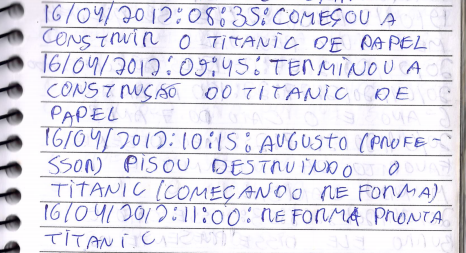 16/04/2012:08:35:COMEÇOU A
CONSTRUIR O TITANIC DE PAPEL
16/04/2012:09:45:TERMINOU A
CONSTRUSÃO DO TITANIC DE
PAPEL
16/04/2012:10:15:AUGUSTO (PROFE-
SSOR) PISOU DESTRUINDO O
TITANIC (COMEÇANDO REFORMA)
16/04/2012:11:00:REFORMA PRONTA
TITANIC